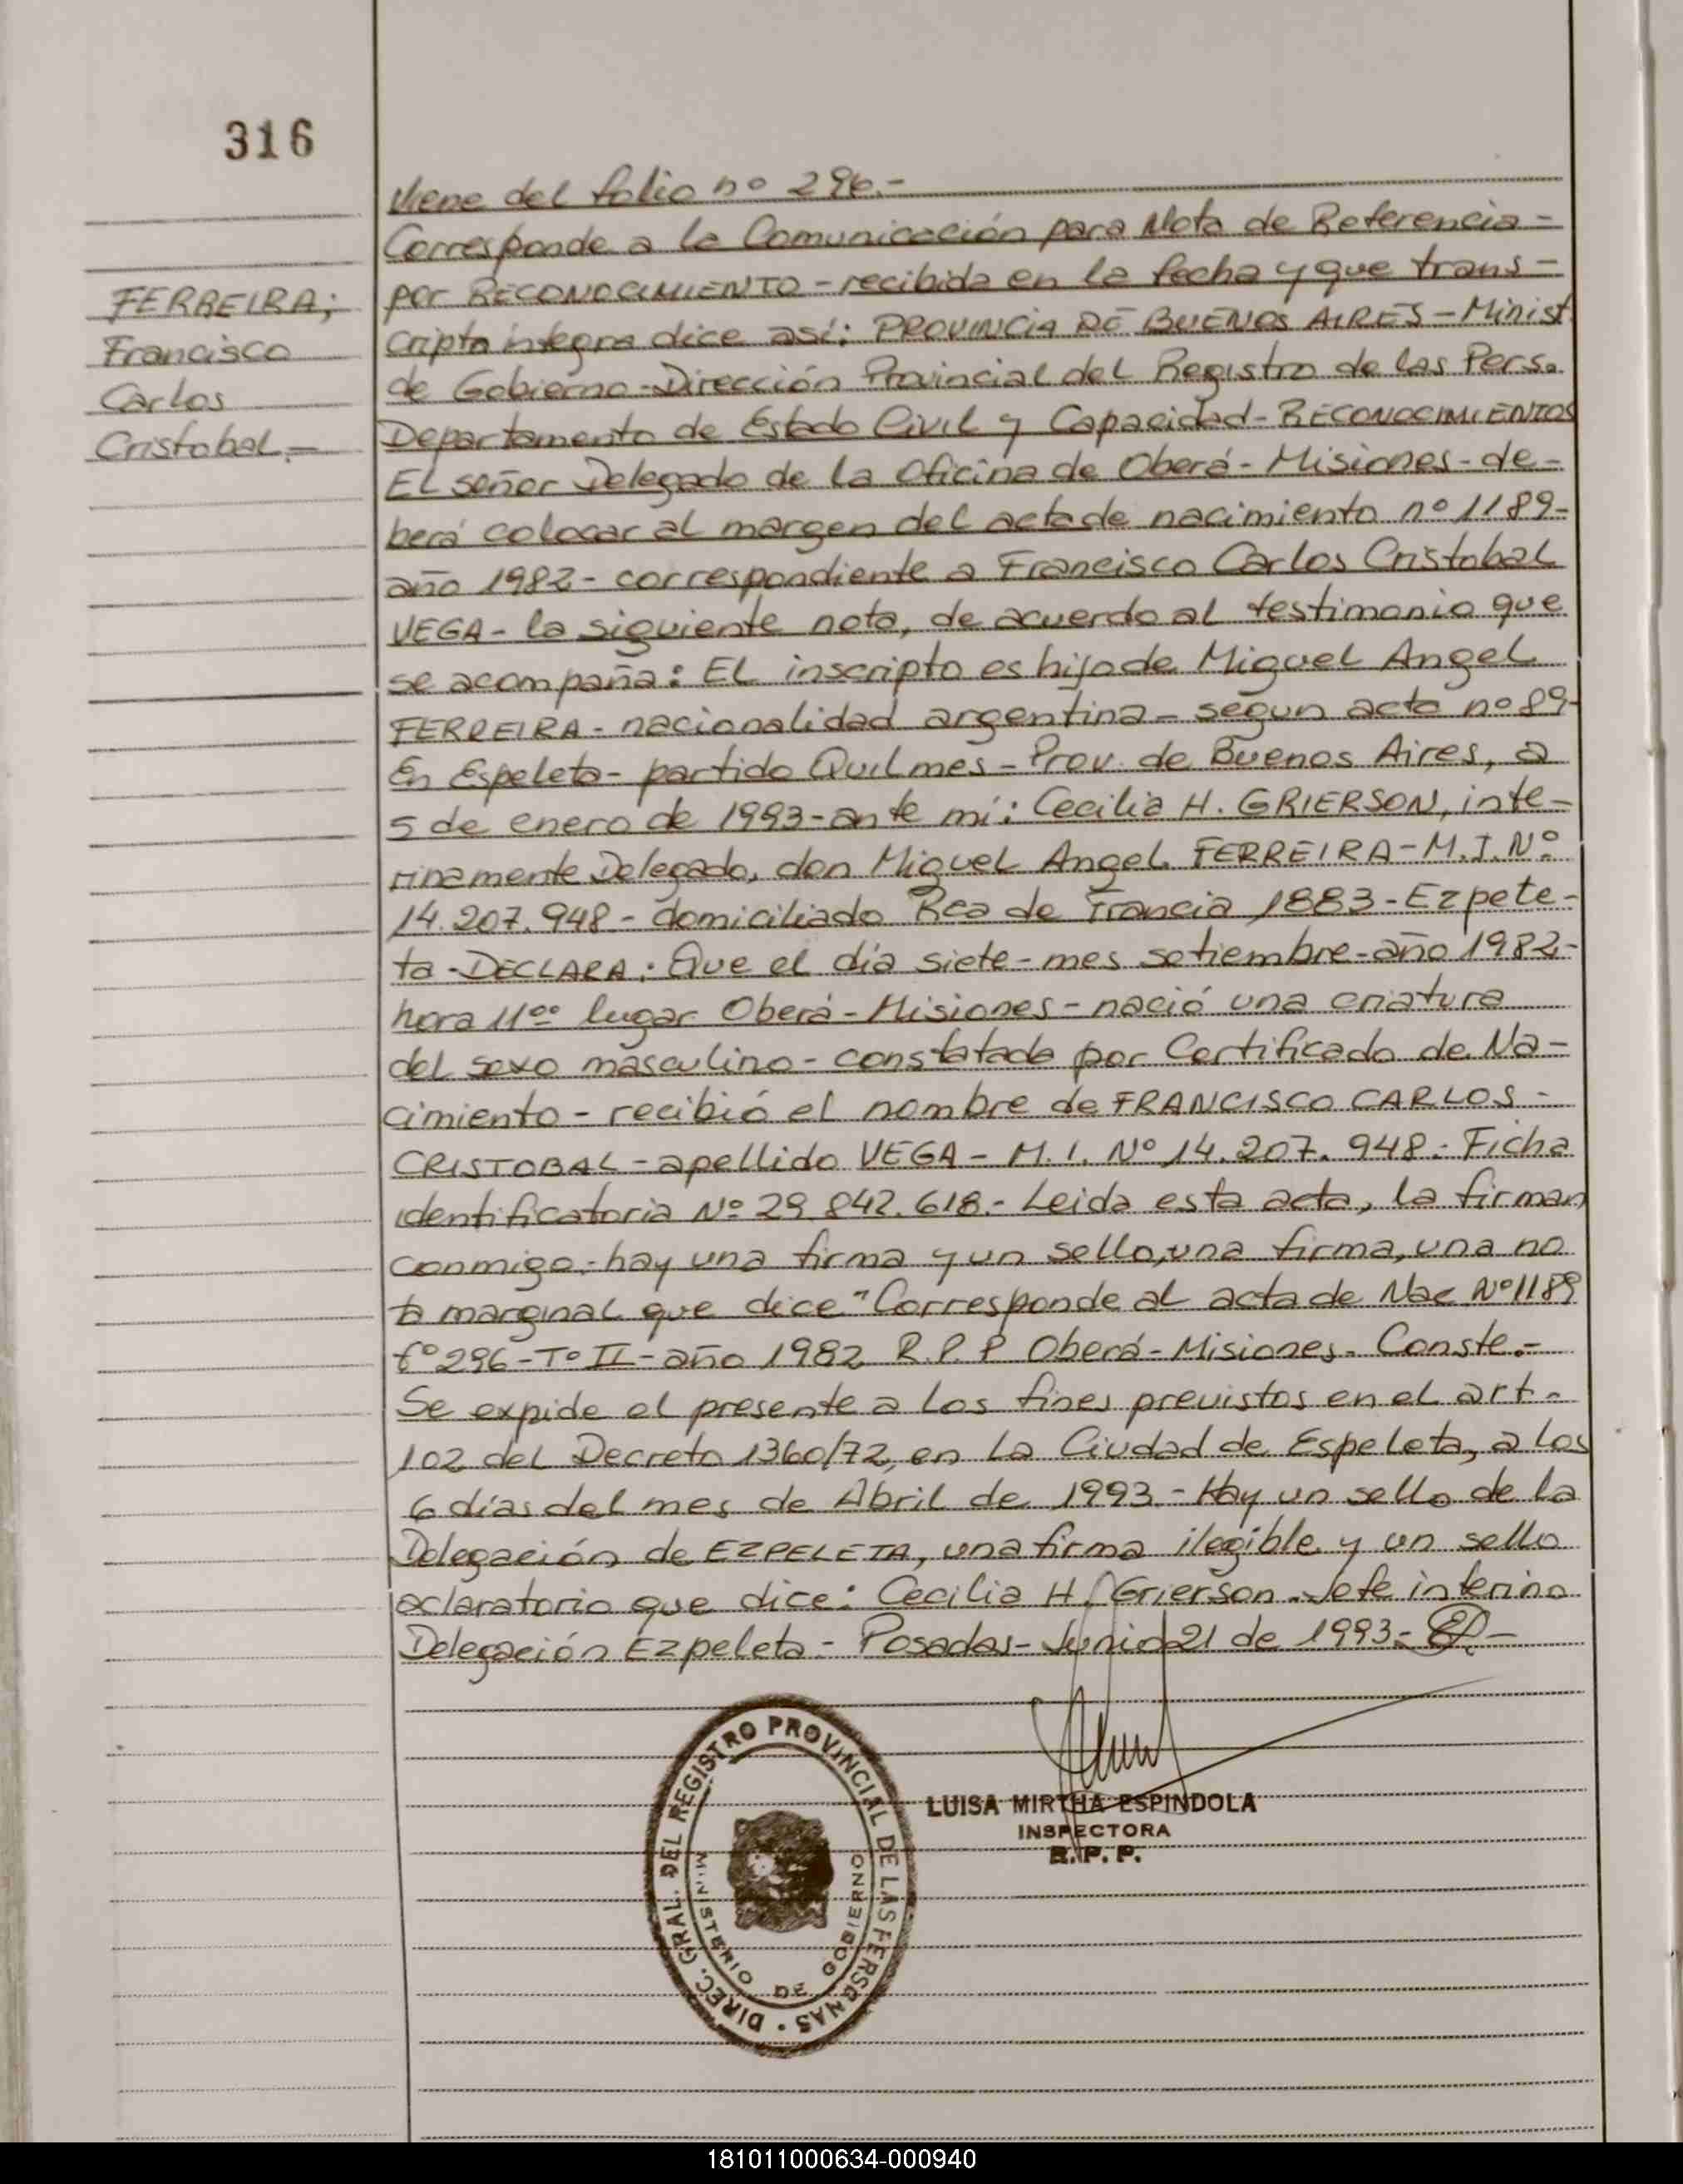 316
Viene del folio nº 296.-
Corresponde a la Comunicación para Nota de Referencia -
por RECONOCIMIENTO - recibida en la fecha y que trans -
FERREIRA;
cripta íntegra dice así: PROVINCIA DE BUENOS AIRES - Minist.
Francisco
de Gobierno - Dirección Provincial del Registro de las Pers.
Carlos
Departamento de Estado Civil y Capacidad - RECONOCIMIENTOS
Cristobal.-
El señor Delegado de la Oficina de Oberá - Misiones - de -
berá colocar al margen del acta de nacimiento nº 1189 -
año 1982 - correspondiente a Francisco Carlos Cristobal
VEGA - la siguiente nota, de acuerdo al testimonio que
se acompaña: El inscripto es hijo de Miguel Angel
FERREIRA - nacionalidad argentina - segun acta nº 89 -
En Espeleta - partido Quilmes - Prov. de Buenos Aires, a
5 de enero de 1993 - ante mí: Cecilia H. GRIERSON, inte -
rinamente Delegado, don Miguel Angel FERREIRA - M.I. Nº
14.207.948 - domiciliado Rca de Francia 1883 - Ezpele -
ta - DECLARA: Que el día siete - mes setiembre - año 1982 -
hora 11ºº lugar Oberá - Misiones - nació una criatura
del sexo masculino - constatado por Certificado de Na -
cimiento - recibió el nombre de FRANCISCO CARLOS -
CRISTOBAL - apellido VEGA - M.I. Nº 14.207.948 - Ficha
identificatoria Nº 29.842.618.- Leida esta acta, la firman
conmigo.- hay una firma y un sello, una firma, una no
ta marginal que dice "Corresponde al acta de Nac Nº 1189
fº 296 - Tº II - año 1982 R.P.P Oberá - Misiones. Conste.-
Se expide el presente a los fines previstos en el art.
102 del Decreto 1360/72, en la Ciudad de Espeleta, a los
6 días del mes de Abril de 1993.- Hay un sello de la
Delegación de EZPELETA, una firma ilegible y un sello
aclaratorio que dice: Cecilia H. Grierson. Jefe interino
Delegación Ezpeleta - Posadas - Junio 21 de 1993.-
DIREC. GRAL. DEL REGISTRO PROVINCIAL DE LAS PERSONAS
MINISTERIO DE GOBIERNO
LUISA MIRTHA ESPINDOLA
INSPECTORA
R. P. P.
181011000634-000940